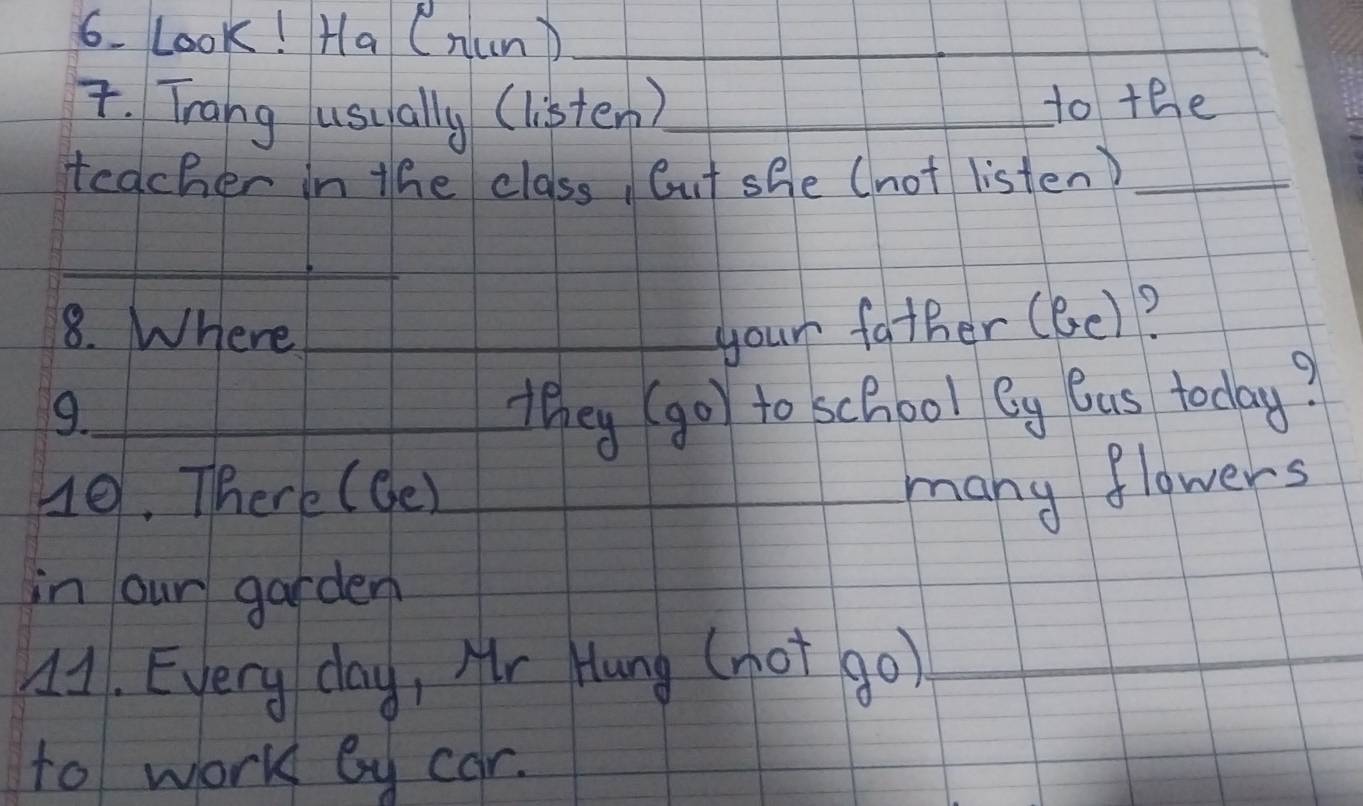 6. Look! Ha (run) ____________.
7. Trang usually (listen) ____________ to the
teacher in the class, but she (not listen) ______
____________.
8. Where ____________ your father (be)?
9. ____________ they (go) to school by bus today?
10. There (be) ____________ many flowers
in our garden
11. Every day, Mr Hung (not go) ____________
to work by car.